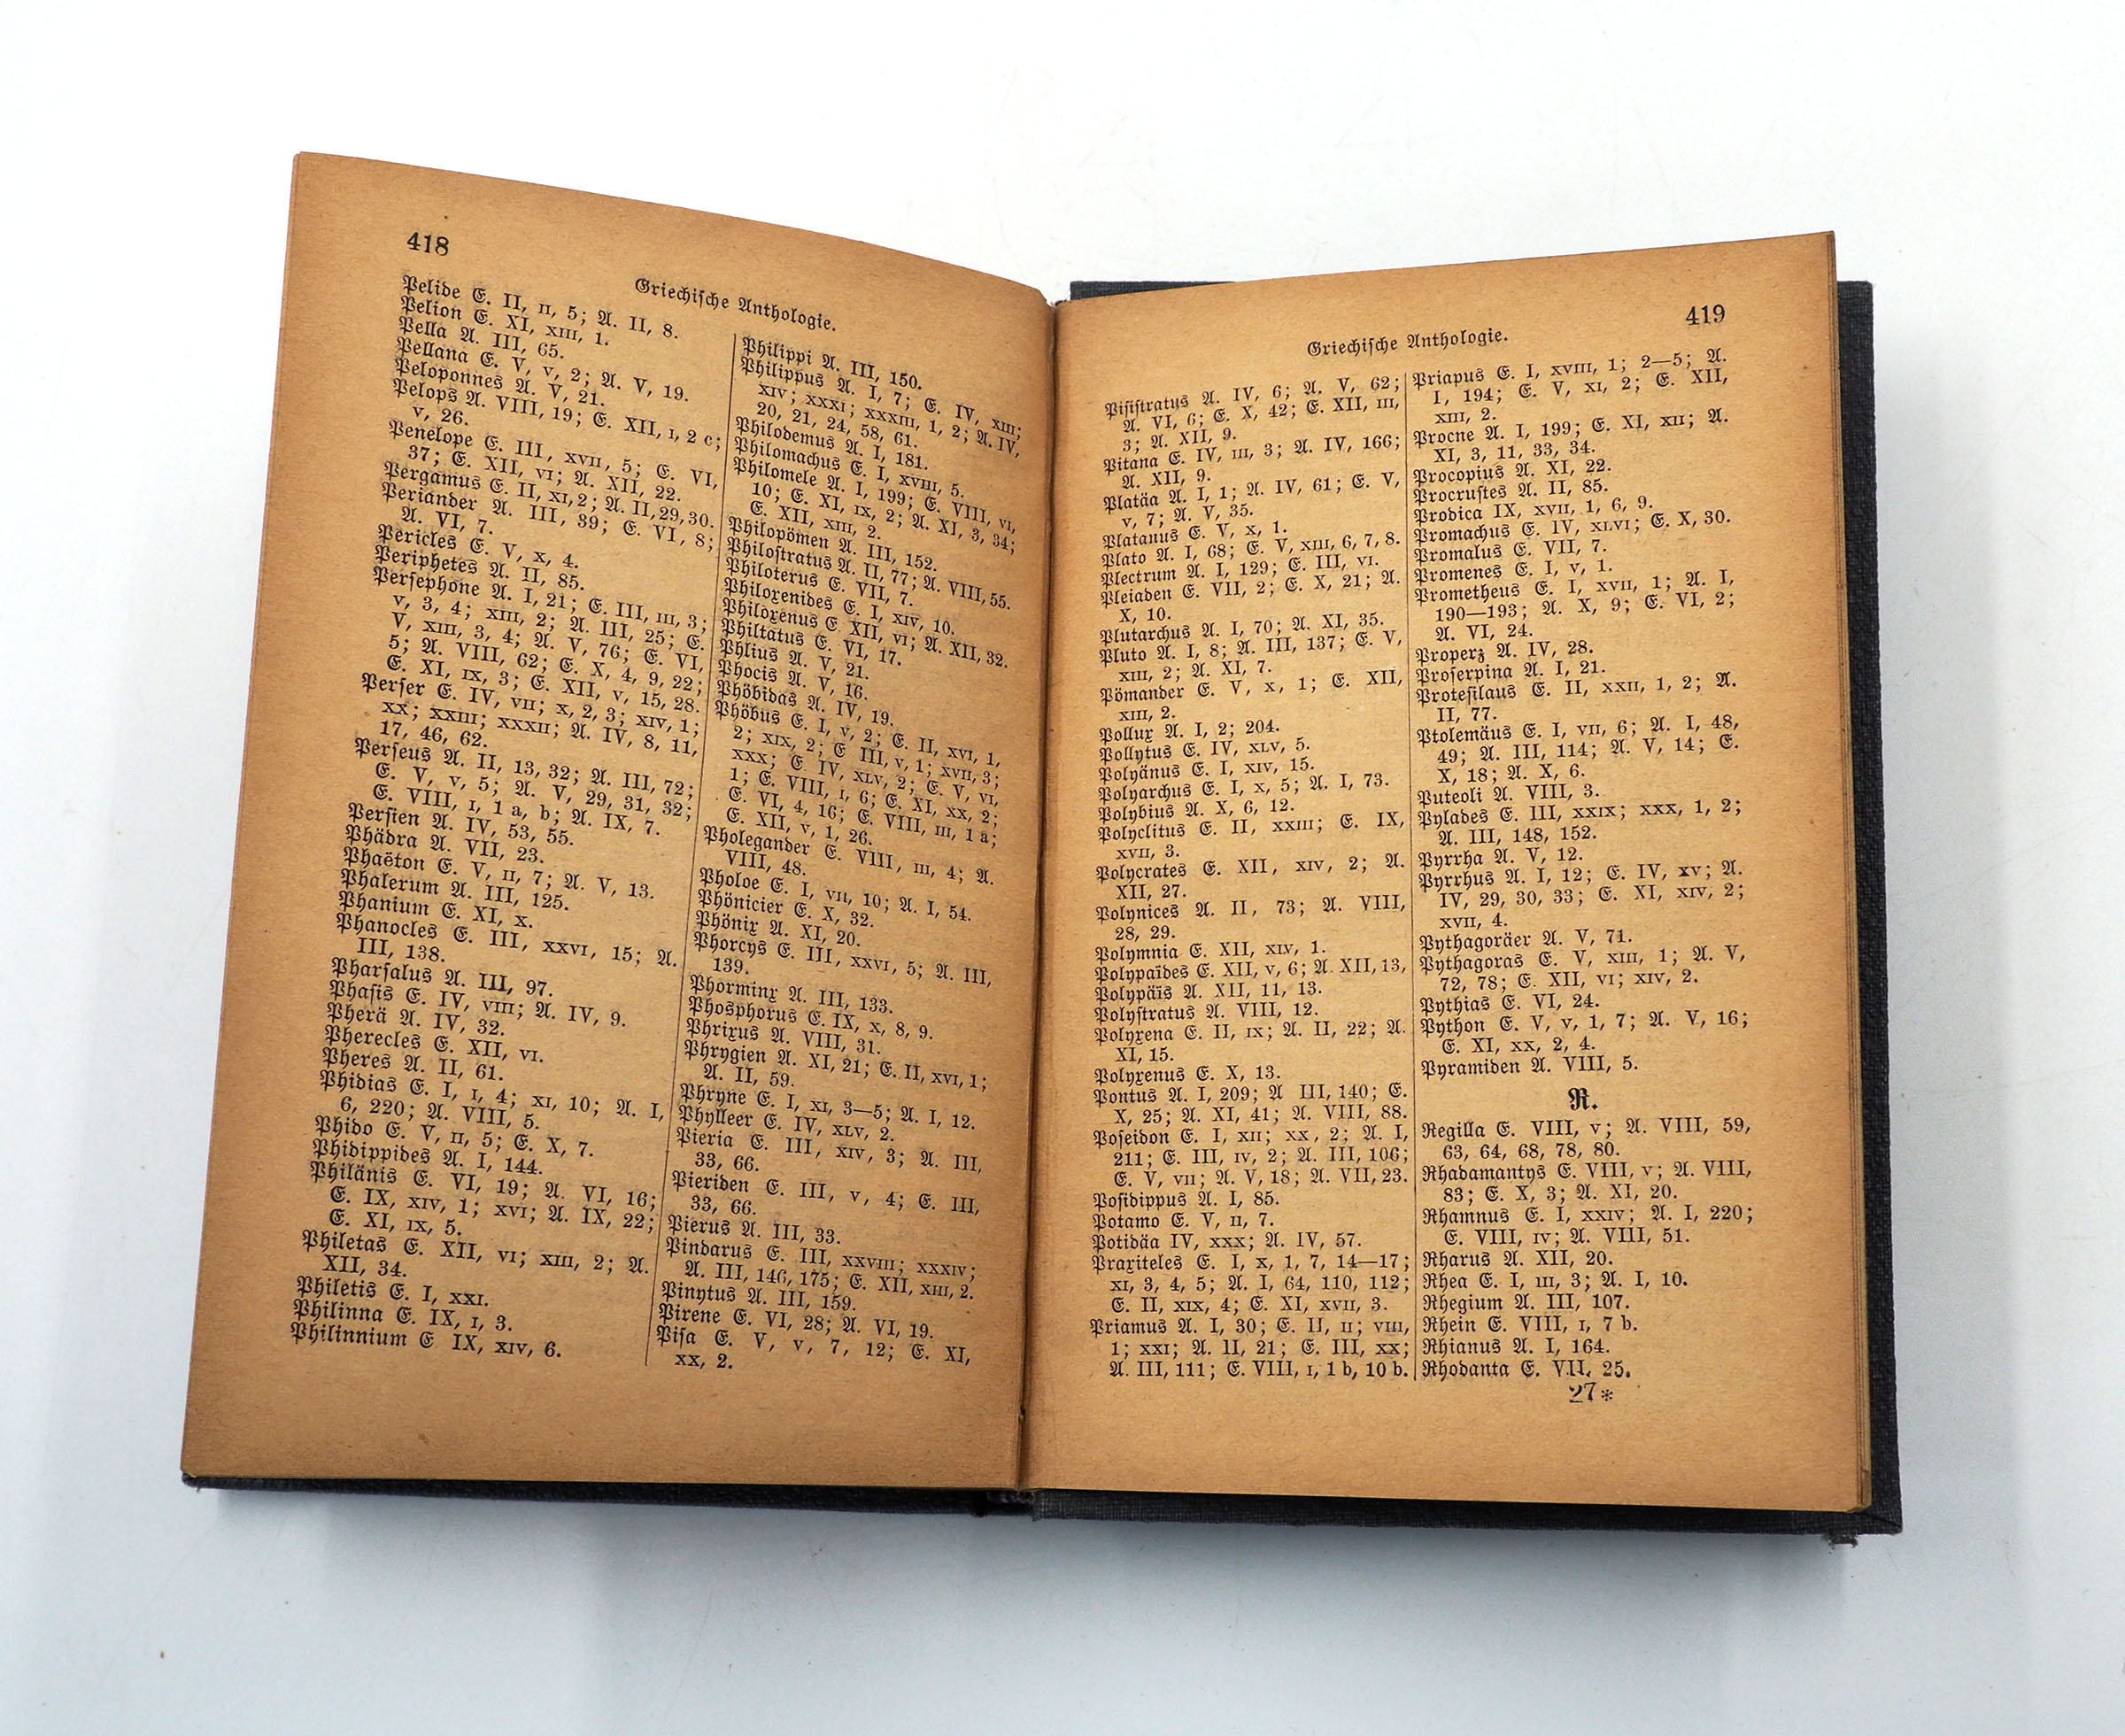 418
Griechische Anthologie.
Pelide E. II, II, 5; A. II, 8.
Pelion E. XI, XIII, 1.
Pella A. III, 65.
Pellana E. V, V, 2; A. V, 19.
Peloponnes A. V, 21.
Pelops A. VIII, 19; E. XII, I, 2 c;
V, 26.
Penelope E. III, XVII, 5; E. VI,
37; E. XII, VI; A. XII, 22.
Pergamus E. II, XI, 2; A. II, 29, 30.
Periander A. III, 39; E. VI, 8;
A. VI, 7.
Pericles E. V, X, 4.
Periphetes A. II, 85.
Persephone A. I, 21; E. III, III, 3;
V, 3, 4; XIII, 2; A. III, 25; E.
V, XIII, 3, 4; A. V, 76; E. VI,
5; A. VIII, 62; E. X, 4, 9, 22;
E. XI, IX, 3; E. XII, V, 15, 28.
Perser E. IV, VII; X, 2, 3; XIV, 1;
XX; XXIII; XXXII; A. IV, 8, 11,
17, 46, 62.
Perseus A. II, 13, 32; A. III, 72;
E. V, V, 5; A. V, 29, 31, 32;
E. VIII, I, 1 a, b; A. IX, 7.
Persien A. IV, 53, 55.
Phädra A. VII, 23.
Phaëton E. V, II, 7; A. V, 13.
Phalerum A. III, 125.
Phanium E. XI, X.
Phanocles E. III, XXVI, 15; A.
III, 138.
Pharsalus A. III, 97.
Phasis E. IV, VIII; A. IV, 9.
Pherä A. IV, 32.
Pherecles E. XII, VI.
Pheres A. II, 61.
Phidias E. I, I, 4; XI, 10; A. I,
6, 220; A. VIII, 5.
Phido E. V, II, 5; E. X, 7.
Phidippides A. I, 144.
Philänis E. VI, 19; A. VI, 16;
E. IX, XIV, 1; XVI; A. IX, 22;
E. XI, IX, 5.
Philetas E. XII, VI; XIII, 2; A.
XII, 34.
Philetis E. I, XXI.
Philinna E. IX, I, 3.
Philinnium E IX, XIV, 6.
Philippi A. III, 150.
Philippus A. I, 7; E. IV, XIII;
XIV; XXXI; XXXIII, 1, 2; A. IV,
20, 21, 24, 58, 61.
Philodemus A. I, 181.
Philomachus E. I, XVIII, 5.
Philomele A. I, 199; E. VIII, VI,
10; E. XI, IX, 2; A. XI, 3, 34;
E. XII, XIII, 2.
Philopömen A. III, 152.
Philostratus A. II, 77; A. VIII, 55.
Philoterus E. VII, 7.
Philoxenides E. I, XIV, 10.
Philoxenus E XII, VI; A. XII, 32.
Philtatus E. VI, 17.
Phlius A. V, 21.
Phocis A. V, 16.
Phöbidas A. IV, 19.
Phöbus E. I, V, 2; E. II, XVI, 1,
2; XIX, 2; E III, V, 1; XVII, 3;
XXX; E. IV, XLV, 2; E. V, VI,
1; E. VIII, I, 6; E. XI, XX, 2;
E. VI, 4, 16; E. VIII, III, 1 a;
E. XII, V, 1, 26.
Pholegander E. VIII, III, 4; A.
VIII, 48.
Pholoe E. I, VII, 10; A. I, 54.
Phönicier E. X, 32.
Phönix A. XI, 20.
Phorcys E. III, XXVI, 5; A. III,
139.
Phorminx A. III, 133.
Phosphorus E. IX, X, 8, 9.
Phrixus A. VIII, 31.
Phrygien A. XI, 21; E. II, XVI, 1;
A. II, 59.
Phryne E. I, XI, 3—5; A. I, 12.
Phylleer E. IV, XLV, 2.
Pieria E. III, XIV, 3; A. III,
33, 66.
Pieriden E. III, V, 4; E. III,
33, 66.
Pierus A. III, 33.
Pindarus E. III, XXVIII; XXXIV;
A. III, 146, 175; E. XII, XIII, 2.
Pinytus A. III, 159.
Pirene E. VI, 28; A. VI, 19.
Pisa E. V, V, 7, 12; E. XI,
XX, 2.
419
Griechische Anthologie.
Pisistratus A. IV, 6; A. V, 62;
A. VI, 6; E. X, 42; E. XII, III,
3; A. XII, 9.
Pitana E. IV, III, 3; A. IV, 166;
A. XII, 9.
Platäa A. I, 1; A. IV, 61; E. V,
V, 7; A. V, 35.
Platanus E. V, X, 1.
Plato A. I, 68; E. V, XIII, 6, 7, 8.
Plectrum A. I, 129; E. III, VI.
Pleiaden E. VII, 2; E. X, 21; A.
X, 10.
Plutarchus A. I, 70; A. XI, 35.
Pluto A. I, 8; A. III, 137; E. V,
XIII, 2; A. XI, 7.
Pömander E. V, X, 1; E. XII,
XIII, 2.
Pollux A. I, 2; 204.
Pollytus E. IV, XLV, 5.
Polyänus E. I, XIV, 15.
Polyarchus E. I, X, 5; A. I, 73.
Polybius A. X, 6, 12.
Polyclitus E. II, XXIII; E. IX,
XVII, 3.
Polycrates E. XII, XIV, 2; A.
XII, 27.
Polynices A. II, 73; A. VIII,
28, 29.
Polymnia E. XII, XIV, 1.
Polypaïdes E. XII, V, 6; A. XII, 13,
Polypäis A. XII, 11, 13.
Polystratus A. VIII, 12.
Polyxena E. II, IX; A. II, 22; A.
XI, 15.
Polyxenus E. X, 13.
Pontus A. I, 209; A III, 140; E.
X, 25; A. XI, 41; A. VIII, 88.
Poseidon E. I, XII; XX, 2; A. I,
211; E. III, IV, 2; A. III, 106;
E. V, VII; A. V, 18; A. VII, 23.
Posidippus A. I, 85.
Potamo E. V, II, 7.
Potidäa IV, XXX; A. IV, 57.
Praxiteles E. I, X, 1, 7, 14—17;
XI, 3, 4, 5; A. I, 64, 110, 112;
E. II, XIX, 4; E. XI, XVII, 3.
Priamus A. I, 30; E. II, II; VIII,
1; XXI; A. II, 21; E. III, XX;
A. III, 111; E. VIII, I, 1 b, 10 b.
Priapus E. I, XVIII, 1; 2—5; A.
I, 194; E. V, XI, 2; E. XII,
XIII, 2.
Procne A. I, 199; E. XI, XII; A.
XI, 3, 11, 33, 34.
Procopius A. XI, 22.
Procrustes A. II, 85.
Prodica IX, XVII, 1, 6, 9.
Promachus E. IV, XLVI; E. X, 30.
Promalus E. VII, 7.
Promenes E. I, V, 1.
Prometheus E. I, XVII, 1; A. I,
190—193; A. X, 9; E. VI, 2;
A. VI, 24.
Properz A. IV, 28.
Proserpina A. I, 21.
Protesilaus E. II, XXII, 1, 2; A.
II, 77.
Ptolemäus E. I, VII, 6; A. I, 48,
49; A. III, 114; A. V, 14; E.
X, 18; A. X, 6.
Puteoli A. VIII, 3.
Pylades E. III, XXIX; XXX, 1, 2;
A. III, 148, 152.
Pyrrha A. V, 12.
Pyrrhus A. I, 12; E. IV, XV; A.
IV, 29, 30, 33; E. XI, XIV, 2;
XVII, 4.
Pythagoräer A. V, 71.
Pythagoras E. V, XIII, 1; A. V,
72, 78; E. XII, VI; XIV, 2.
Pythias E. VI, 24.
Python E. V, V, 1, 7; A. V, 16;
E. XI, XX, 2, 4.
Pyramiden A. VIII, 5.
R.
Regilla E. VIII, V; A. VIII, 59,
63, 64, 68, 78, 80.
Rhadamantys E. VIII, V; A. VIII,
83; E. X, 3; A. XI, 20.
Rhamnus E. I, XXIV; A. I, 220;
E. VIII, IV; A. VIII, 51.
Rharus A. XII, 20.
Rhea E. I, III, 3; A. I, 10.
Rhegium A. III, 107.
Rhein E. VIII, I, 7 b.
Rhianus A. I, 164.
Rhodanta E. VII, 25.
27*